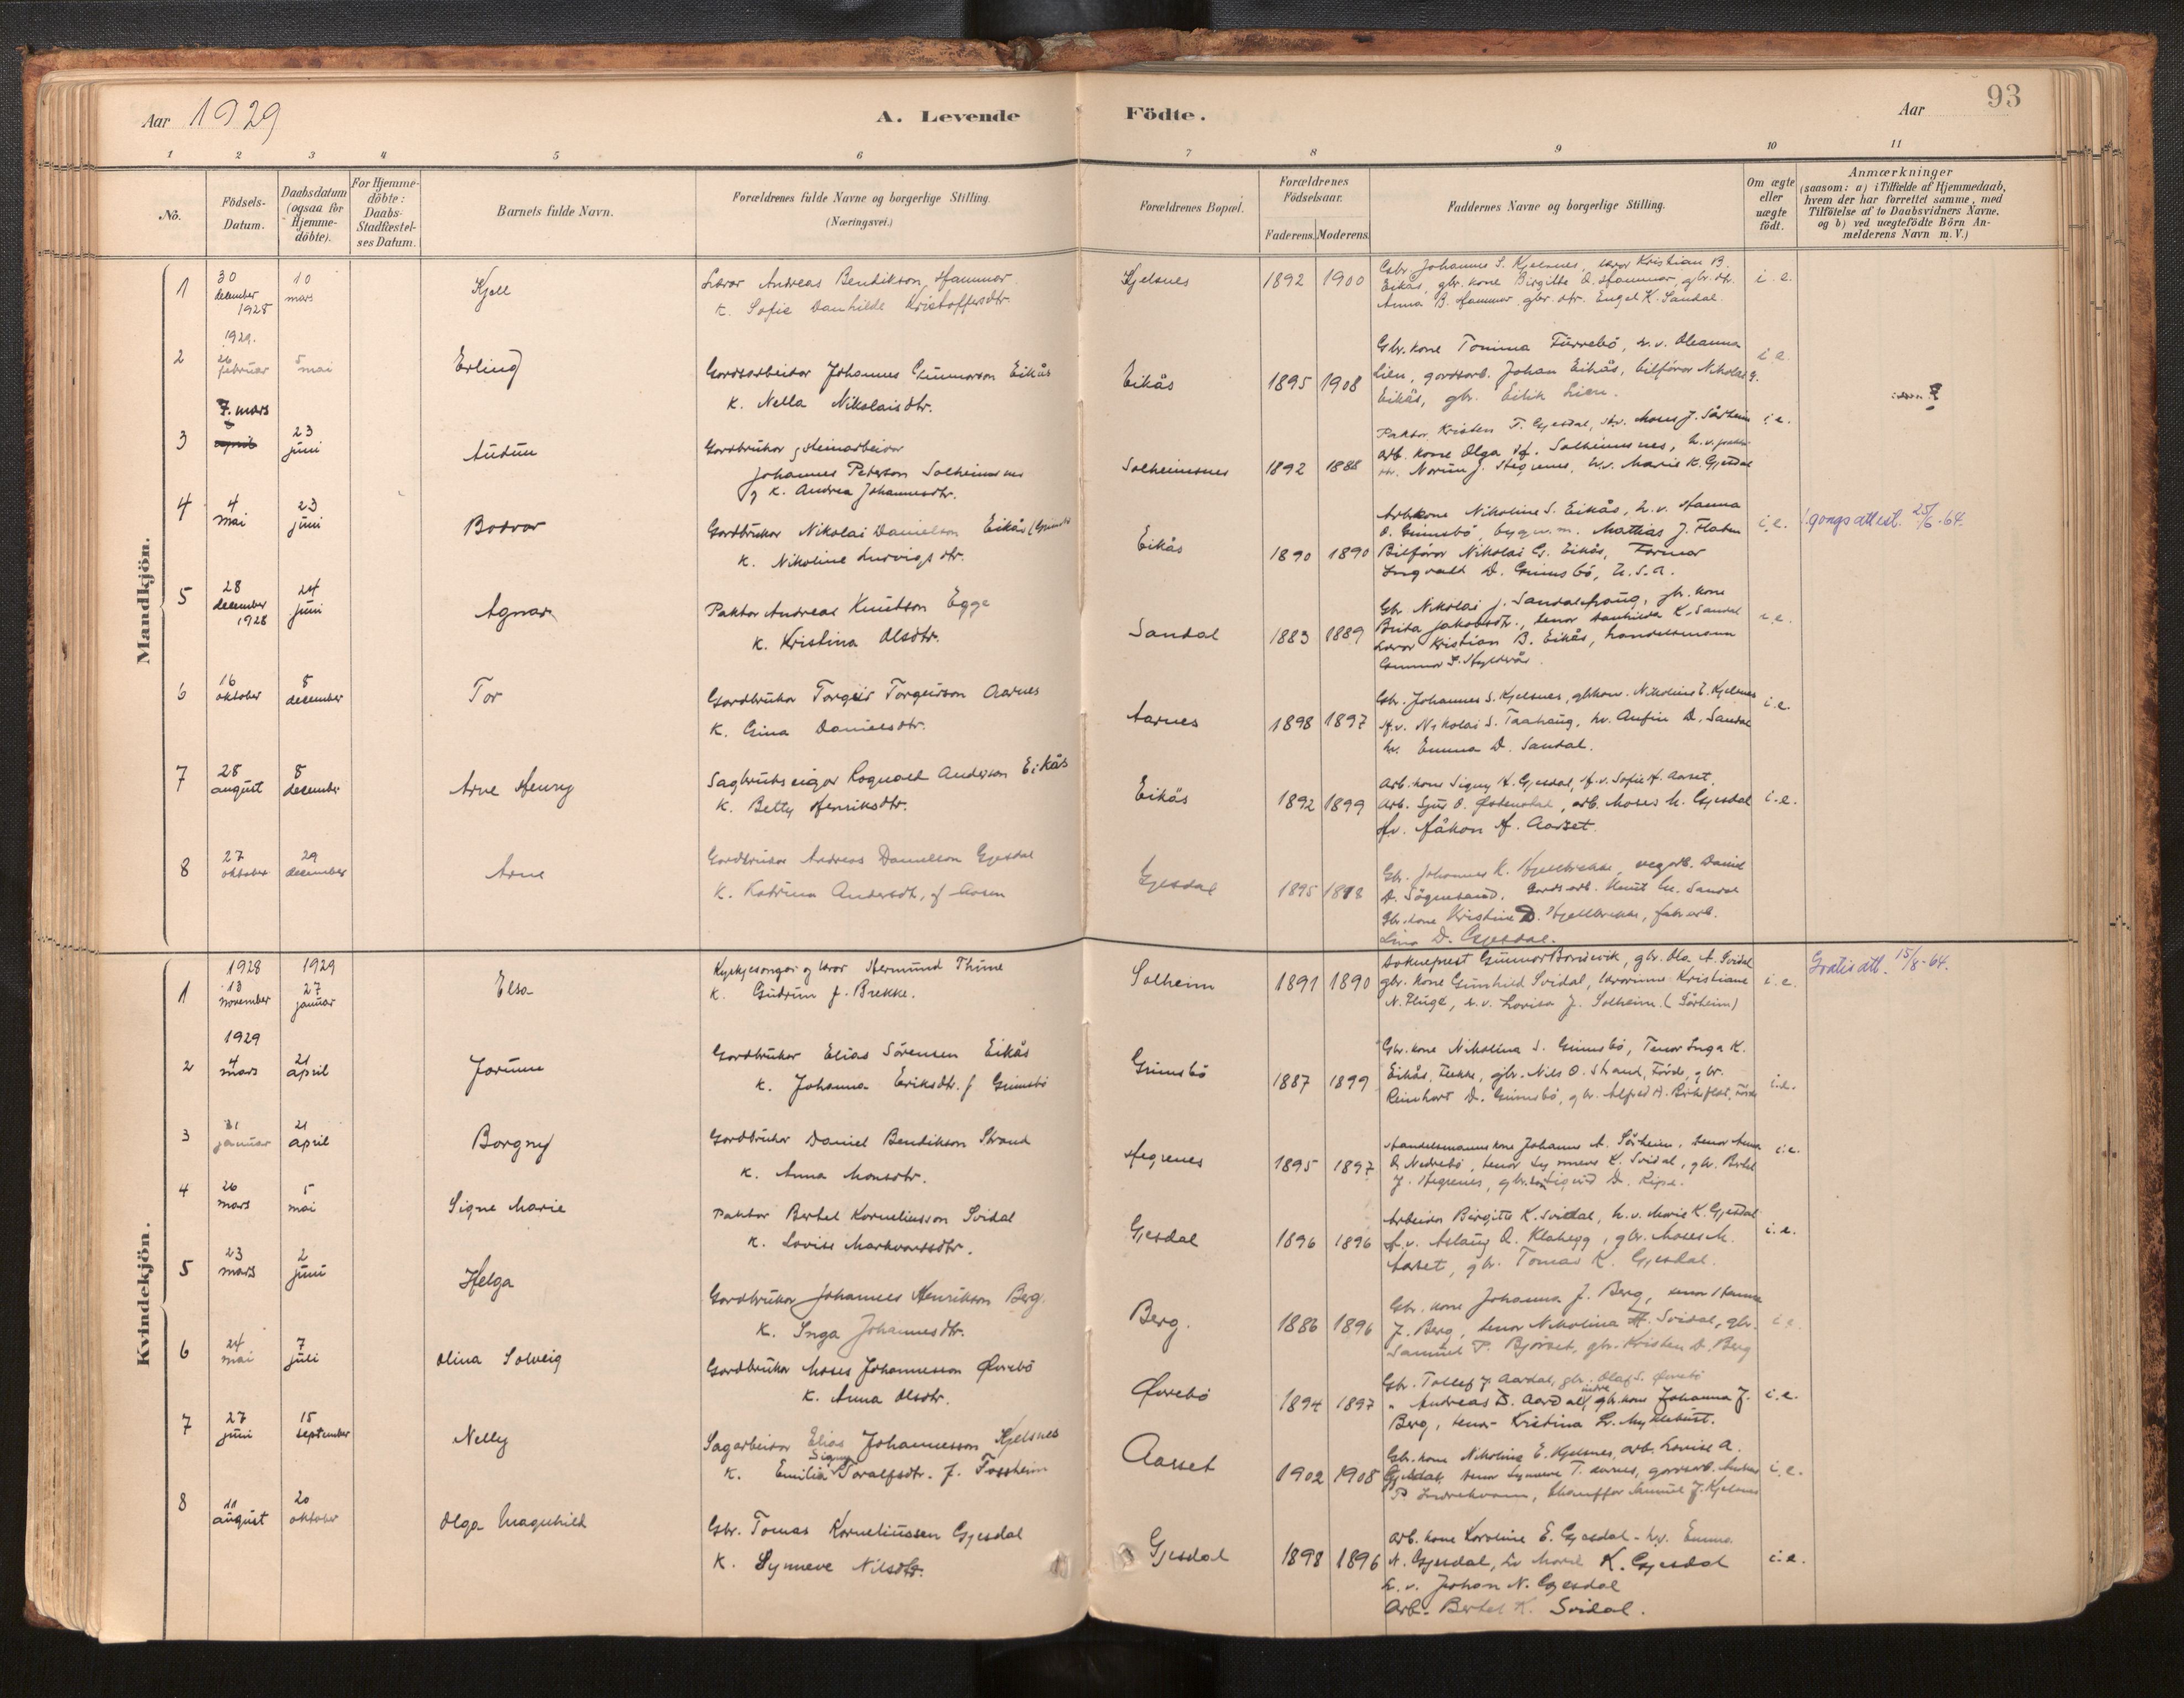 Aar 1929
A. Levende Födte.
Aar
93
1 2 3 4 5 6 7 8 9 10 11
Nö.
Födsels-Datum.
Daabsdatum (ogsaa for Hjemme-döbte).
For Hjemme-döbte: Daabs-Stadfæstel-ses Datum.
Barnets fulde Navn.
Forældrenes fulde Navne og borgerlige Stilling.
(Næringsvei.)
Forældrenes Bopæl.
Forældrenes Födselsaar.
Faderens. Moderens.
Faddernes Navne og borgerlige Stilling.
Om ægte eller uægte födt.
Anmærkninger
(saasom: a) i Tilfælde af Hjemmedaab,
hvem der har forrettet samme, med
Tilföielse af to Daabsvidners Navne,
og b) ved uægtefödte Börn An-
melderens Navn m. V.)
Mandkjön.
1 30 december 1928 10 mars Kjell
Lærar Andreas Bendikson Hammar
K. Sofie Danhilde Kristoffersdtr.
Kjelsnes 1892 1900
Gbr. Johannes S. Kjelsnes, lærar Kristian B.
Eikås, gbr. kone Birgitte O. Hammar, gbr. dtr.
Anna B. Hammar, gbr. dtr. Engel K. Sandal.
i. e.
1929.
2 26 februar 5 mai Erling
Gardsarbeidar Johannes Gunnarson Eikås
K. Nella Nikolaisdtr.
Eikås 1895 1908
Gbr. kone Tomina Furrebö, h. v. Oleanna
Lien, gardsarb. Johan Eikås, bilförar Nikolai G.
Eikås, gbr. Eilik Lien.
i. e.
3 7. mars april 23 juni Audun
Gardbrukar og steinarbeidar
Johannes Pederson Solheimsnes
og K. Andrea Johannesdtr.
Solheimsnes 1892 1888
Paktar Kristen T. Gjesdal, Moses J. Sårheim
arb. kone Olga H. Solheimsnes, h. v.
Marie K. Gjesdal
i. e.
4 4 mai 23 juni Bodvar
Gardbrukar Nikolai Danielson Eikås
K. Nikoline Ludvigsdtr.
Eikås 1890 1890
Arb.kone Nikoline S. Eikås, h. v. Hanna
O. Grimsbö, bygn. m. Mattias J. Flaten
Bilförar Nikolai G. Eikås, Farmar
Ingvald D. Grimsbö, U. S. A.
i. e.
1 gongs attest. 25/6-64.
5 28 december 1928 24 juni Agnar
Paktar Andreas Knutson Egge
K. Kristina Olsdtr.
Sandal 1883 1889
Gbr. Nikolai J. Sandalshaug, gbr. kone
Brita Jakobsdtr., tenar Danhilda K. Sandal
Lærar Kristian B. Eikås, handelsmann
i. e.
6 16 oktober 8 december Tor
Gardbrukar Torgeir Torgeirson Aarnes
K. Gina Danielsdtr.
Aarnes 1898 1897
Gbr. Johannes S. Kjelsnes, gbkone. Nikoline E. Kjelsnes
H. v. Nikolai S. Taahaug, hv. Anfin D. Sandal
hv. Emma D. Sandal.
i. e.
7 28 august 8 december Arne Henry
Sagbrukseigar Rognald Anderson Eikås
K. Betty Henriksdtr.
Eikås 1892 1899
Arb. kone Signy H. Gjesdal, H. v. Sofie H. Aaset.
Arb. Sjur O. , arb. Moses M. Gjesdal
Hv. Håkon H. Aaset.
i. e.
8 27 oktober 29 december Arne
Gardbrukar Andreas Danielson Gjesdal
K. Katrina Andersdtr., f. Aasen
Gjesdal 1895 1898
Gbr. Johannes K. Hjellbrekke, vegarb. Daniel
D. Sögnesand. Gardsarb. Knut M. Sandal
Gbr. kone Kristine D. Hjellbrekke, fabr.arb.
Lina D. Gjesdal.
Kvindekjön.
1 1928 13 november 1929 27 januar Elsa
Kyrkjesongar og lærar Hermund Thune
K. Gudrun f. Brekke.
Solheim 1891 1890
Sokneprest Gunnar Bondevik, gbr. Ola A. Svidal
gbr. kone Gunhild Svidal, lærarinne Kristiane
N. Fluge, h. v. Lovisa J. Solheim. (Sårheim)
i. e.
Gratis att. 15/8-64.
1929
2 4 mars 21 april Jorunn
Gardbrukar Elias Sörensen Eikås
K. Johanna Eriksdtr. f. Grimsbö
Grimsbö 1887 1899
Gbr. kone Nikolina S. Grimsbö, Tenar Inga K.
Eikås, gbr. Nils O. Strand, Förde, gbr.
Reinhart D. Grimsbö, gbr. Alfred A. Birkeflot,
i. e.
3 31 januar 21 april Borgny
Gardbrukar Daniel Bendikson Strand
K. Anna Monsdtr.
Hegrenes 1895 1897
Handelsmannskone Johanne A. Sårheim, tenar Anna
O. Nedrebö, tenar Synneve K. Svidal, gbr. Bertel
J. Hegrenes, gbr. Sigurd D. Ripe.
i. e.
4 26 mars 5 mai Signe Marie
Paktar Bertel Korneliusson Svidal
K. Lovise Markvardsdtr.
Gjesdal 1896 1896
Arbeidar Birgitte K. Svidal, h. v. Marie K. Gjesdal
h. v. Aslaug O. Klakegg, gbr. Moses M.
Aaset, gbr. Tomas K. Gjesdal.
i. e.
5 23 mars 2 juni Helga
Gardbrukar Johannes Henrikson Berg.
K. Inga Johannesdtr.
Berg. 1886 1896
Gbr. kone Johanna J. Berg, tenar Hanna
J. Berg, tenar Nikolina H. Svidal, gbr.
Samuel P. Björset, gbr. Kristen D. Berg
i. e.
6 24 mai 7 juli Olina Solveig
Gardbrukar Moses Johannesson Øvrebö
K. Anna Olsdtr.
Øvrebö 1894 1897
Gbr. Tollef J. Aardal, gbr. Olaf S. Øvrebö
" Andreas D. Aardal indre, gbr. kone Johanna J.
Berg, tenar Kristina L. Myklebust.
i. e.
7 27 juni 15 september Nelly
Sagarbeidar Elias Johannesson Kjelsnes
K. Emilia Signy Toralfsdtr. f. Fossheim
Aasset 1902 1908
Gbr. kone Nikolina E. Kjelsnes, arb. Lovise A.
Gjesdal, tenar Synneve T. Aarnes, gardsarb. Andreas
P. Indrekvam, Chauffør Samuel J. Kjelsnes
i. e.
8 11 august 20 oktober Olga Magnhild
Gbr. Tomas Korneliussen Gjesdal
K. Synneve Nilsdtr.
Gjesdal 1898 1896
Arb. kone Karoline E. Gjesdal - h.v. Emma
N. Gjesdal, Lv K. Gjesdal
h. v. Johan N. Gjesdal
Arb. Bertel K. Svidal.
i. e.